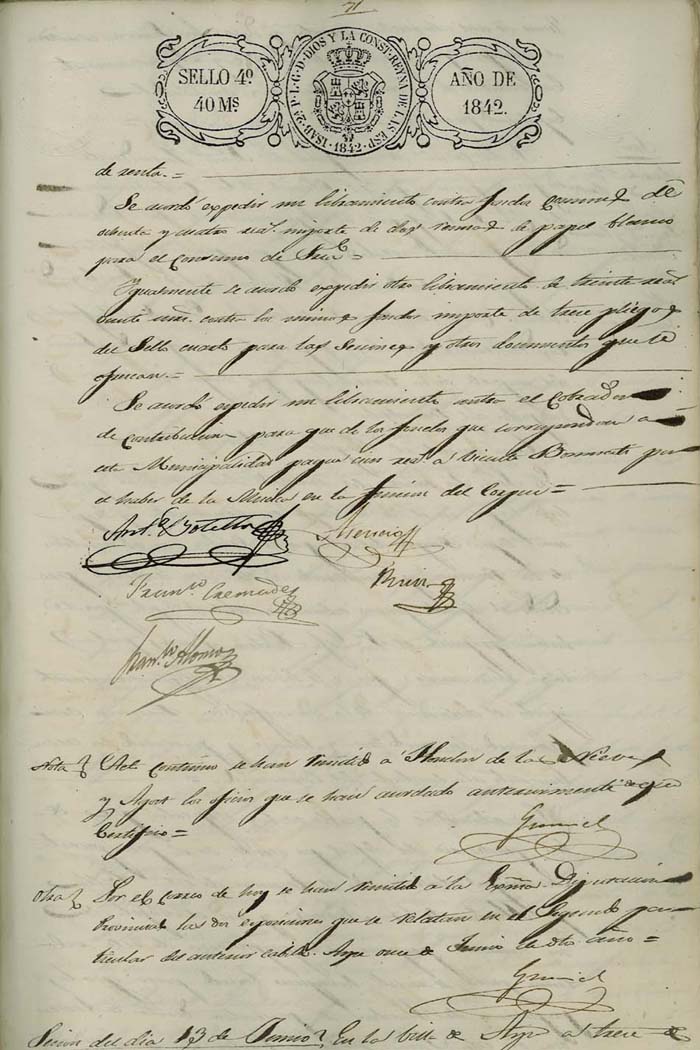 71
SELLO 4º
40 Mˢ
ISAB. 2ª P. L. G. D. DIOS Y LA CONST. REYNA DE LAS ESP.
1842
AÑO DE
1842.
de renta.=
Se acordó expedir un libramiento contra fondos Comunes de
ochenta y cuatro real. importe de dos resmas de papel blanco
para el consumo de
Igualmente se acordó expedir otro libramiento de treinta real
veinte mrs. contra los mismos fondos importe de trece pliegos
del Sello cuarto para las Sesiones y otros documentos que se
ofrecan.=
Se acordó expedir un libramiento contra el Cobrador
de contribucion para que de los fondos que correspondan a
esta Municipalidad pague cien res. a Vicente por
el haber de la Musica en la funcion del Corpus=
Antº Botella
Asencio
Franco. Cremades
Franco Alonso
Nota } Act continuo se han remitido a Hondon de las Nieves
y Agost los oficios que se han acordado anteriormente de que
Certifico=
Otra } Por el correo de hoy se han remitido á la Exma. Diputacion
Provincial las dos exposiciones que se relatan en el Segundo par-
ticular del anterior cabdo. Aspe once de Junio de dho año=
Sesion del dia 13 de Junio } En la villa de Aspe a trece de